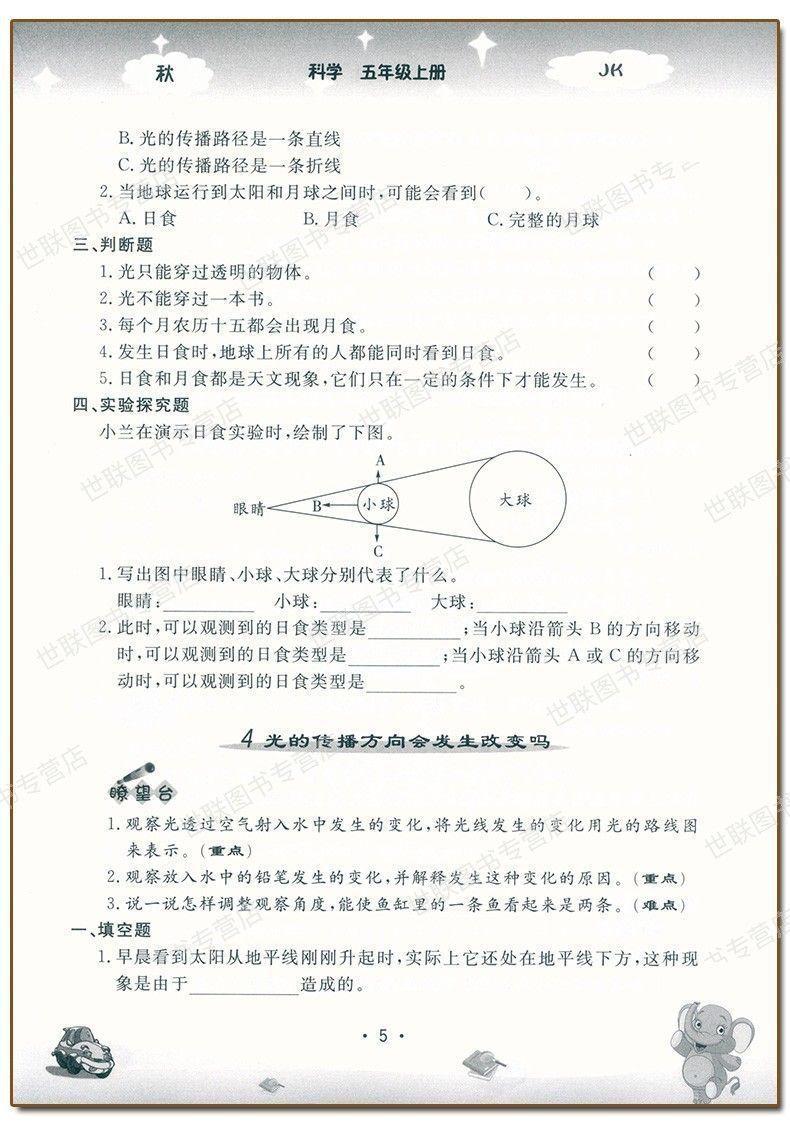 秋
科学 五年级上册
JK
B. 光的传播路径是一条直线
C. 光的传播路径是一条折线
2. 当地球运行到太阳和月球之间时,可能会看到( )。
A. 日食 B. 月食 C. 完整的月球
三、判断题
1. 光只能穿过透明的物体。 ( )
2. 光不能穿过一本书。 ( )
3. 每个月农历十五都会出现月食。 ( )
4. 发生日食时,地球上所有的人都能同时看到日食。 ( )
5. 日食和月食都是天文现象,它们只在一定的条件下才能发生。 ( )
四、实验探究题
小兰在演示日食实验时,绘制了下图。
A
眼睛 B 小球 大球
C
1. 写出图中眼睛、小球、大球分别代表了什么。
眼睛:__________ 小球:__________ 大球:__________
2. 此时,可以观测到的日食类型是__________;当小球沿箭头 B 的方向移动
时,可以观测到的日食类型是__________;当小球沿箭头 A 或 C 的方向移
动时,可以观测到的日食类型是__________。
4 光的传播方向会发生改变吗
瞭望台
1. 观察光透过空气射入水中发生的变化,将光线发生的变化用光的路线图
来表示。(重点)
2. 观察放入水中的铅笔发生的变化,并解释发生这种变化的原因。(重点)
3. 说一说怎样调整观察角度,能使鱼缸里的一条鱼看起来是两条。(难点)
一、填空题
1. 早晨看到太阳从地平线刚刚升起时,实际上它还处在地平线下方,这种现
象是由于____________造成的。
· 5 ·
世联图书专营店
世联图书专营店
世联图书专营店
世联图书专营店
世联图书专营店
世联图书专营店
世联图书专营店
世联图书专营店
世联图书专营店
世联图书专营店